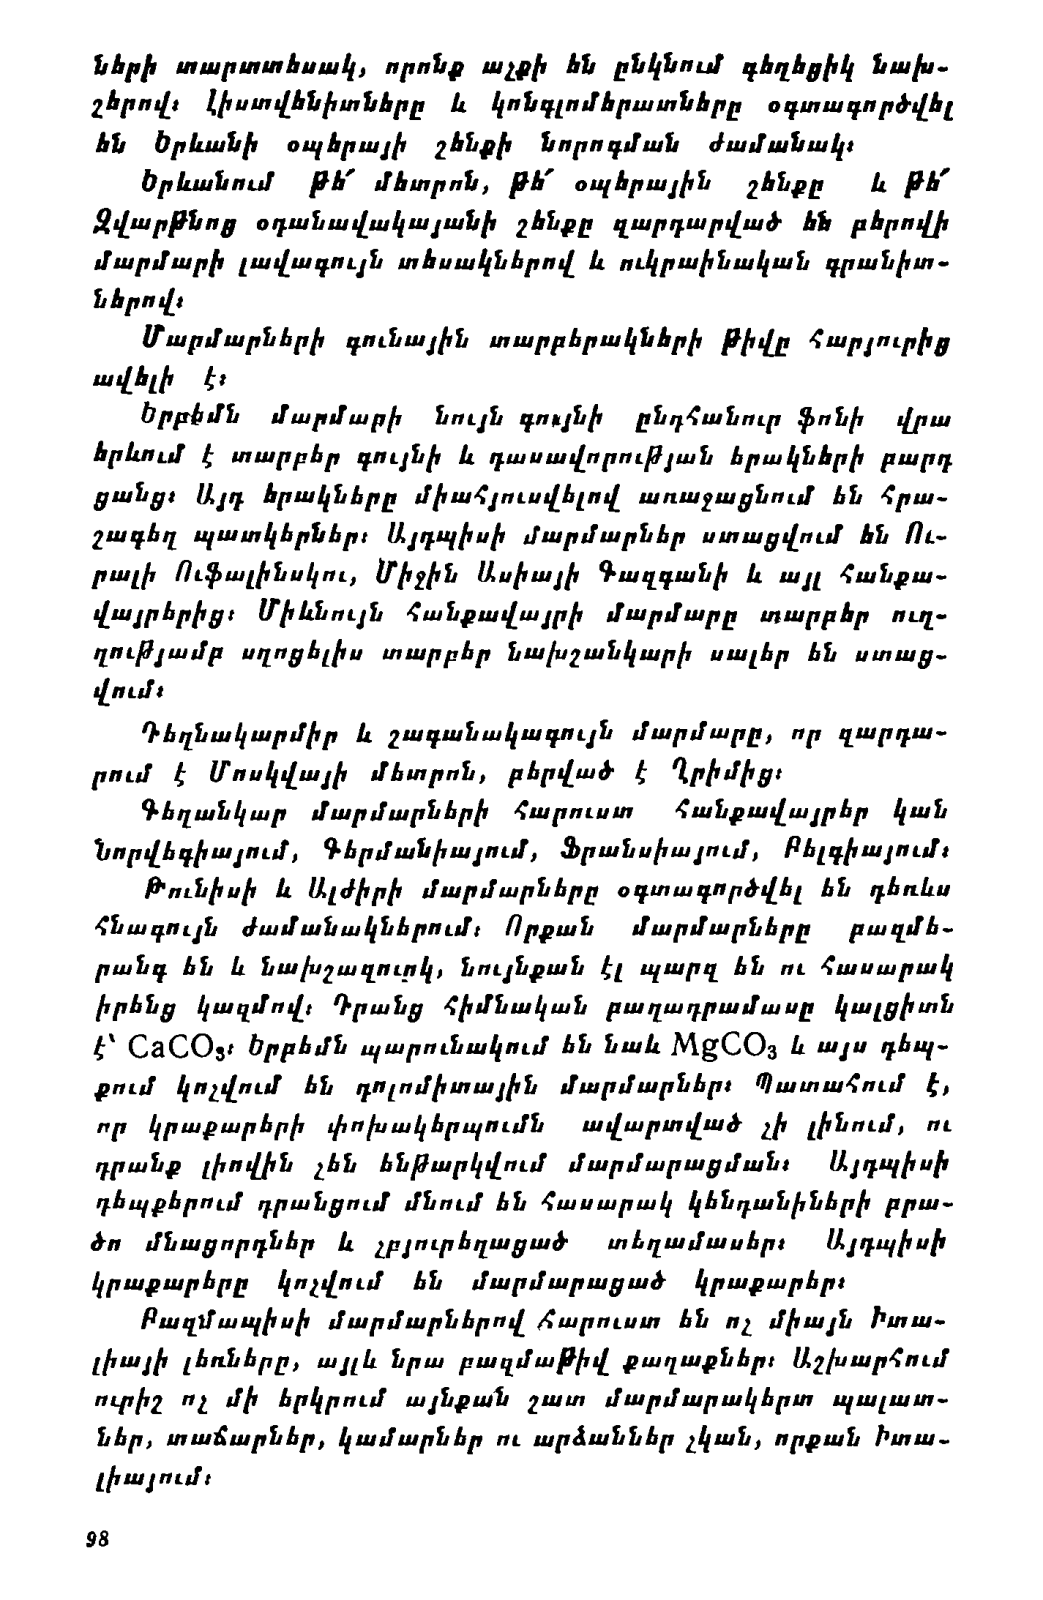 ների տարատեսակ, որոնք աչքի են ընկնում գեղեցիկ նախ-
շերով։ Լիստվենիտները և կոնգլոմերատները օգտագործվել
են Երևանի օպերայի շենքի նորոգման ժամանակ։
Երևանում թե՛ մետրոն, թե՛ օպերային շենքը և թե՛
Զվարթնոց օդանավակայանի շենքը զարդարված են բերովի
մարմարի լավագույն տեսակներով և ուկրաինական գրանիտ-
ներով։
Մարմարների գունային տարբերակների թիվը հարյուրից
ավելի է։
Երբեմն մարմարի նույն գույնի ընդհանուր ֆոնի վրա
երևում է տարբեր գույնի և դասավորության երակների բարդ
ցանց։ Այդ երակները միահյուսվելով առաջացնում են հրա-
շագեղ պատկերներ։ Այդպիսի մարմարներ ստացվում են Ու-
րալի Ուֆալինսկու, Միջին Ասիայի Գազգանի և այլ հանքա-
վայրերից։ Միևնույն հանքավայրի մարմարը տարբեր ուղ-
ղությամբ սղոցելիս տարբեր նախշանկարի սալեր են ստաց-
վում։
Դեղնակարմիր և շագանակագույն մարմարը, որ զարդա-
րում է Մոսկվայի մետրոն, բերված է Ղրիմից։
Գեղանկար մարմարների հարուստ հանքավայրեր կան
Նորվեգիայում, Գերմանիայում, Ֆրանսիայում, Բելգիայում։
Թունիսի և Ալժիրի մարմարները օգտագործվել են դեռևս
հնագույն ժամանակներում։ Որքան մարմարները բազմե-
րանգ են և նախշազուրկ, նույնքան էլ պարզ են ու հասարակ
իրենց կազմով։ Դրանց հիմնական բաղադրամասը կալցիտն
է՝ CaCO₃։ Երբեմն պարունակում են նաև MgCO₃ և այս դեպ-
քում կոչվում են դոլոմիտային մարմարներ։ Պատահում է,
որ կրաքարերի փոխակերպումն ավարտված չի լինում, ու
դրանք լիովին չեն ենթարկվում մարմարացման։ Այդպիսի
դեպքերում դրանցում մնում են հասարակ կենդանիների բրա-
ծո մնացորդներ և չբյուրեղացած տեղամասեր։ Այդպիսի
կրաքարերը կոչվում են մարմարացած կրաքարեր։
Բազմապիսի մարմարներով հարուստ են ոչ միայն Իտա-
լիայի լեռները, այլև նրա բազմաթիվ քաղաքներ։ Աշխարհում
ուրիշ ոչ մի երկրում այնքան շատ մարմարակերտ պալատ-
ներ, տաճարներ, կամարներ ու արձաններ չկան, որքան Իտա-
լիայում։
98